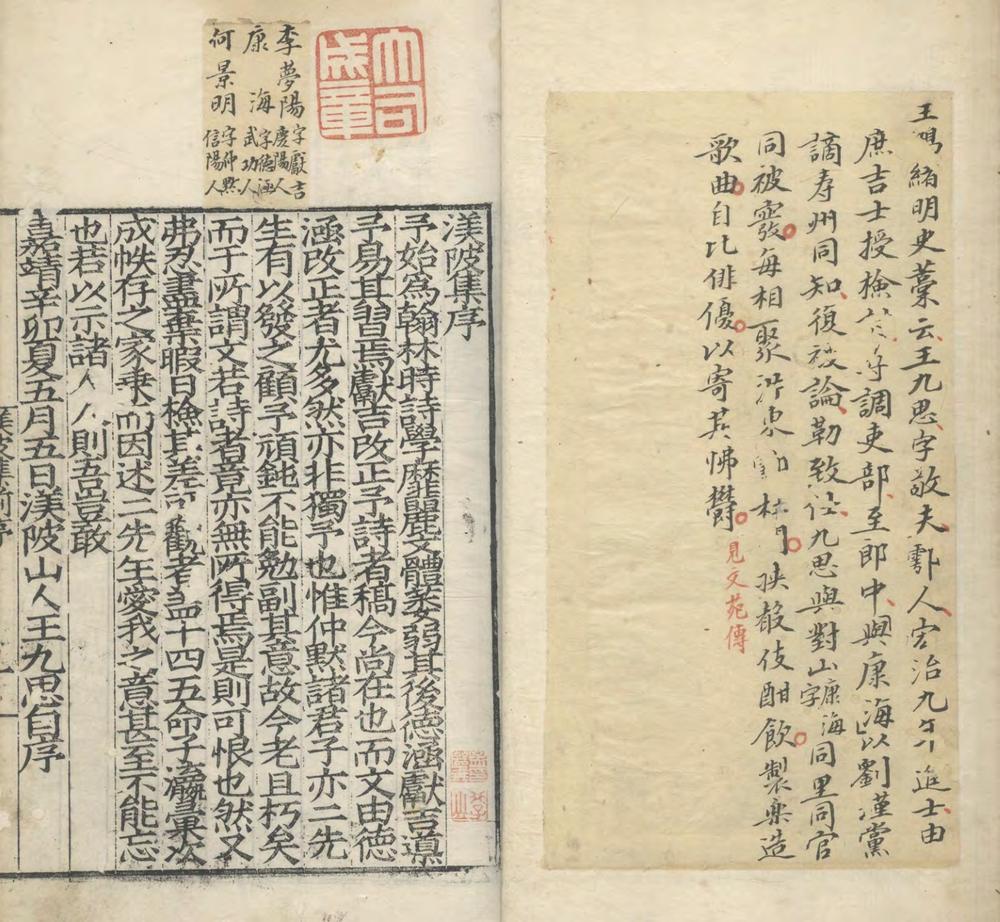 王鴻緒明史藁云王九思字敬夫鄠人宏治九年進士由
庶吉士授檢討尋調吏部至郎中與康海以劉瑾黨
謫寿州同知復被論勒致仕九思與對山康海字同里同官
同被廢每相聚沜東鄠杜間挾聲伎酣飲製樂造
歌曲自比俳優以寄其怫鬱
見文苑傳
大司
成章
李夢陽字獻吉慶陽人
康海字德涵武功人
何景明字仲默信陽人
渼陂集序
予始爲翰林時詩學靡麗文體萎弱其後德涵獻吉導
予易其習焉獻吉改正予詩者稿今尚在也而文由德
涵改正者尤多然亦非獨予也惟仲默諸君子亦二先
生有以發之顧予頑鈍不能勉副其意故今老且朽矣
而于所謂文若詩者竟亦無所得焉是則可恨也然又
弗忍盡棄暇日檢其差可觀者畣十四五命子瀛彙次
成帙存之家乗而因述二先生愛我之意甚至不能忘
也若以示諸人人則吾豈敢
嘉靖辛卯夏五月五日渼陂山人王九思自序
渼陂集前序